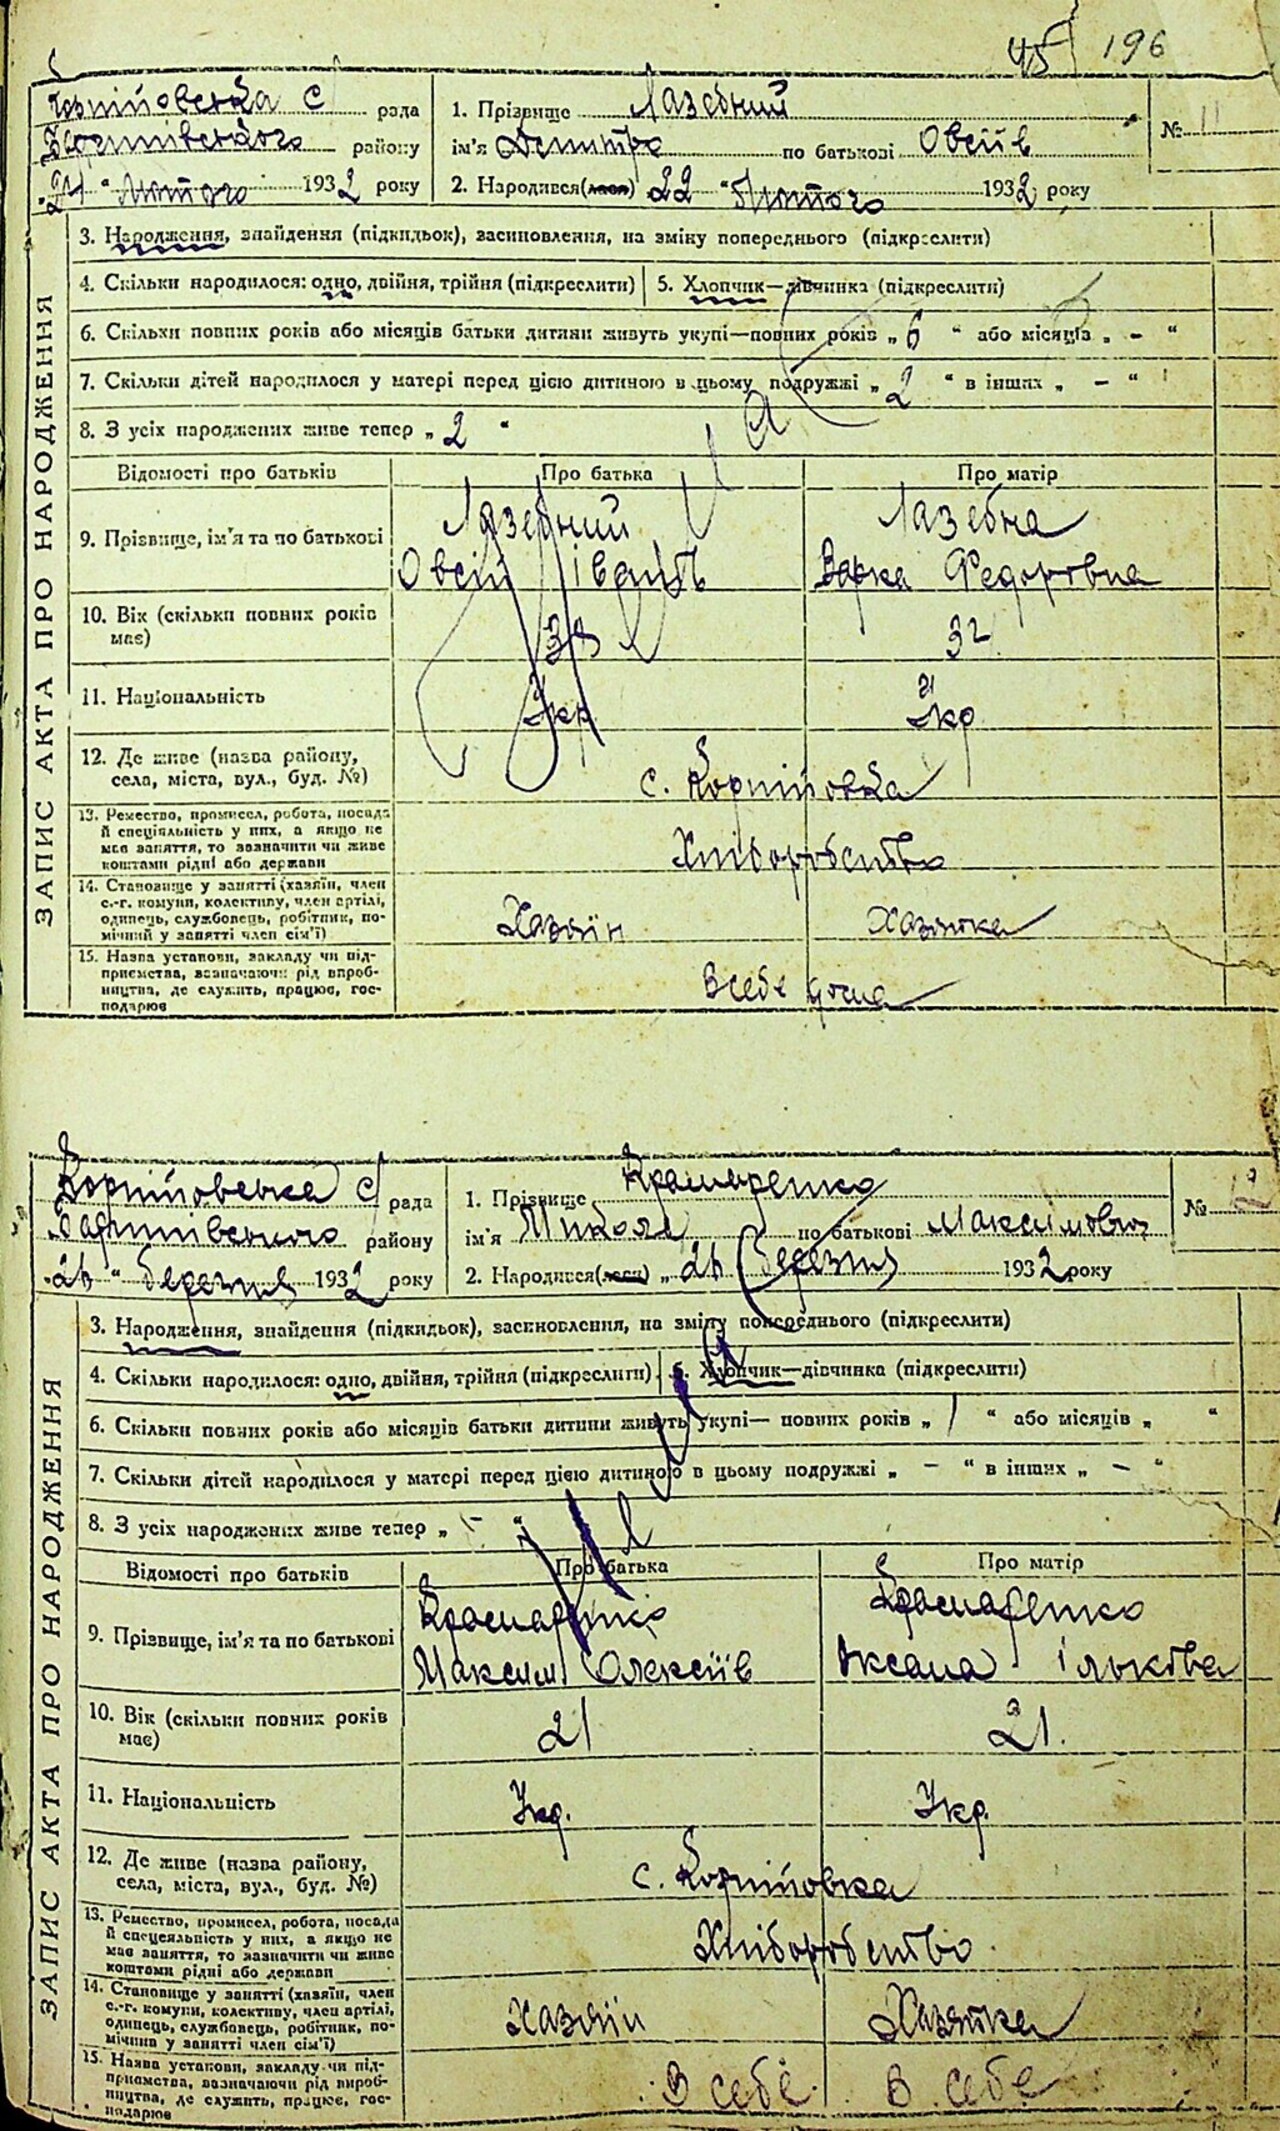 45 196
Корпіловська С рада
району
"24" Лютого 1932 року
1. Прізвище Лазебний
ім'я Дмитро по батькові Овсіїв
2. Народився(лася) 22 "Лютого 1932 року
№ 11
ЗАПИС АКТА ПРО НАРОДЖЕННЯ
3. Народження, знайдення (підкидьок), засиновлення, на зміну попереднього (підкреслити)
4. Скільки народилося: одно, двійня, трійня (підкреслити)
5. Хлопчик—дівчинка (підкреслити)
6. Скільки повних років або місяців батьки дитини живуть укупі—повних років „ 6 “ або місяців „ - “
7. Скільки дітей народилося у матері перед цією дитиною в цьому подружжі „ 2 “ в інших „ - “
8. З усіх народжених живе тепер „ 2 “
Відомості про батьків Про батька Про матір
9. Прізвище, ім'я та по батькові
Лазебний Лазебна
Овсій Іванів Варка Федоровна
10. Вік (скільки повних років
має)
32
11. Національність Укр Укр
12. Де живе (назва району,
села, міста, вул., буд. №)
с. Корпіловка
13. Ремество, промисел, робота, посада
й спеціяльність у них, а якщо не
має заняття, то зазначити чи живе
коштами рідні або держави
Хліборобство
14. Становище у занятті (хазяїн, член
с.-г. комуни, колективу, член артілі,
одинець, службовець, робітник, по-
мічний у занятті член сім'ї)
Хазяїн Хазяйка
15. Назва установи, закладу чи під-
приємства, возначаючи рід вироб-
ництва, де служить, працює, гос-
подарює
В себе дома
Корпіловська С рада
району
"26" березня 1932 року
1. Прізвище Крамаренко
ім'я Микола по батькові Максимович
2. Народився(лася) „ 26 березня 1932 року
№ 12
ЗАПИС АКТА ПРО НАРОДЖЕННЯ
3. Народження, знайдення (підкидьок), засиновлення, на зміну попереднього (підкреслити)
4. Скільки народилося: одно, двійня, трійня (підкреслити)
5. Хлопчик—дівчинка (підкреслити)
6. Скільки повних років або місяців батьки дитини живуть укупі— повних років „ 1 “ або місяців „ “
7. Скільки дітей народилося у матері перед цією дитиною в цьому подружжі „ — “ в інших „ — “
8. З усіх народжених живе тепер „ - “
Відомості про батьків Про батька Про матір
9. Прізвище, ім'я та по батькові
Крамаренко Крамаренко
Максим Олексіїв Оксана Ількова
10. Вік (скільки повних років
має)
21 21.
11. Національність Укр. Укр.
12. Де живе (назва району,
села, міста, вул., буд. №)
с. Корпіловка
13. Ремество, промисел, робота, посада
й спецеяльність у них, а якщо не
має заняття, то зазначити чи живе
коштами рідні або держави
Хліборобство
14. Становище у занятті (хазяїн, член
с.-г. комуни, колективу, член артілі,
одинець, службовець, робітник, по-
мічний у занятті член сім'ї)
Хазяїн Хазяйка
15. Назва установи, закладу чи під-
приємства, вазначаючи рід вироб-
ництва, де служить, працює, гос-
подарює
В себе В себе